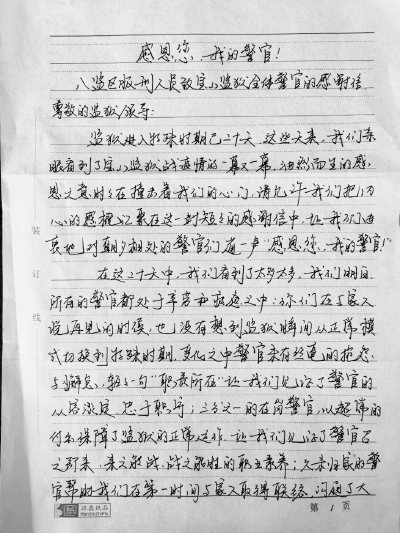 感恩您,我的警官!
八监区服刑人员致宜山监狱全体警官的感谢信
尊敬的监狱领导:
监狱进入特殊时期已二十天,这些天来,我们亲
眼看到了宜山监狱战疫情的一幕又一幕,油然而生的感
恩之意时时在撞击着我们的心门,请允许我们把内
心的感慨汇聚在这一封短短的感谢信中,让我们由
衷地对朝夕相处的警官们道一声“感恩您,我的警官!”
在这二十天中,我们看到了太多太多,我们明白
所有的警官都处于辛劳和
之中:你们在与家人
说再见的时候,也没有想到监狱瞬间从正常模
式切换到特殊时期,变化之中警官未有丝毫的抱怨
与懈怠,轻轻一句“职责所在”让我们见证了警官的
从容淡定、忠于职守;三分之一的在岗警官,以超常的
付出保障了监狱的正常运作,让我们见证了警官召
之即来、来之能战、战之能胜的职业素养;久未归家的警
官帮助我们在第一时间与家人取得联络,沟通了大
装
订
线
汉鑫纸品
第 1 页